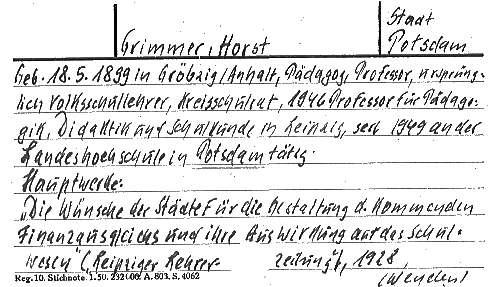 Stadt
Grimmer, Horst
Potsdam
Geb. 18.5.1899 in Gröbzig/Anhalt, Pädagog, Professor, ursprüng-
lich Volksschullehrer, Kreisschulrat, 1946 Professor für Pädago-
gik, Didaktik und Schulkunde in Leipzig, seit 1949 an der
Landeshochschule in Potsdam tätig.
Hauptwerke:
„Die Wünsche der Städte für die Gestaltung d. kommenden
Finanzausgleichs und ihre Auswirkung auf das Schul-
wesen" (Leipziger Lehrer-zeitung), 1928,
(Wenden)
Reg. 10. Stichnote. 1. 50. 232000. A. 803. S. 4062